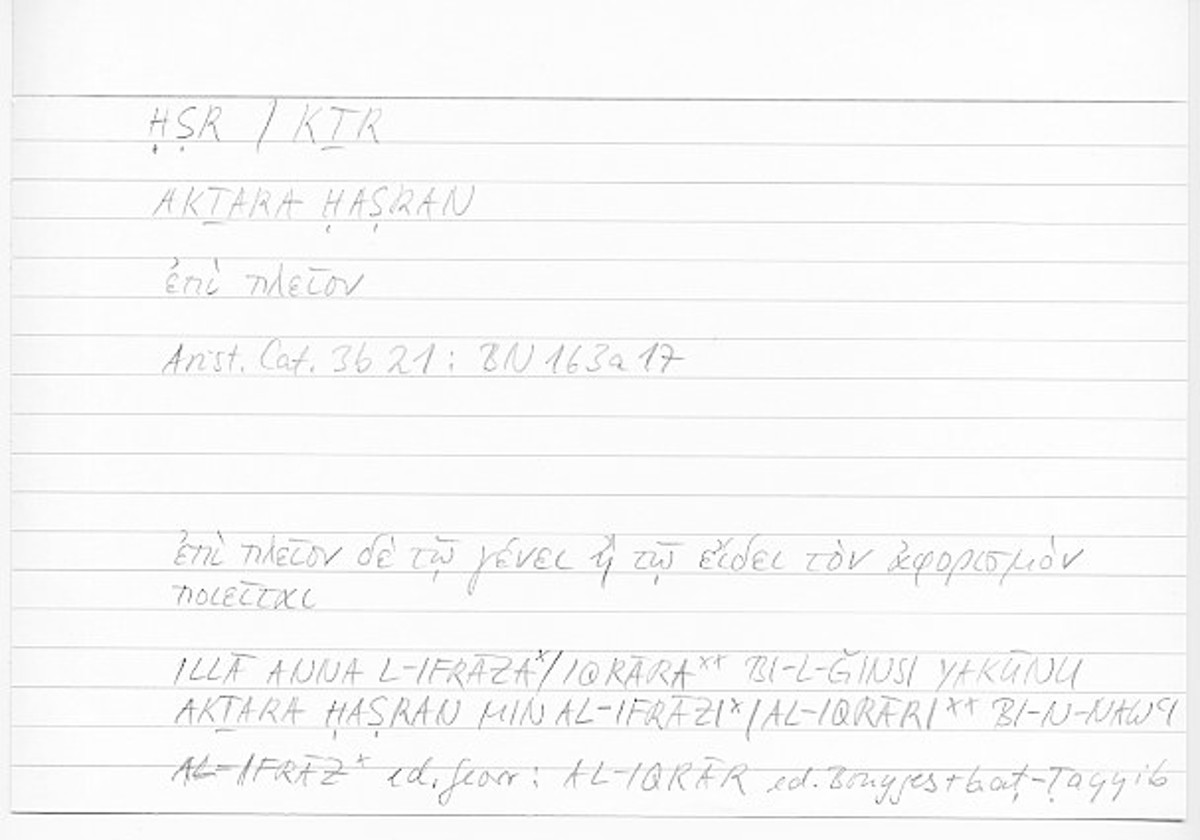 ḤṢR / KṮR
AKṮARA ḤAṢRAN
ἐπὶ πλεῖον
Arist. Cat. 3b 21 : BN 163a 17
ἐπὶ πλεῖον δὲ τῷ γένει ἢ τῷ εἴδει τὸν ἀφορισμὸν
ποιεῖται
ILLĀ ANNA L-IFRĀZAˣ/IQRĀRAˣˣ BI-L-ǦINSI YAKŪNU
AKṮARA ḤAṢRAN MIN AL-IFRĀZIˣ/AL-IQRĀRIˣˣ BI-N-NAWʿI
AL-IFRĀZˣ ed. Georr : AL-IQRĀR ed. Bouyges + b. aṭ-Ṭayyib